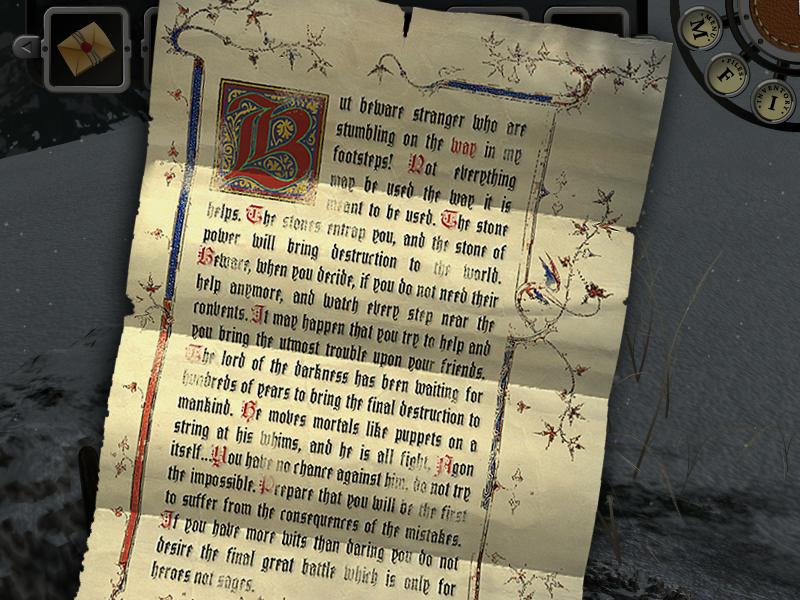 But beware stranger who are
stumbling on the way in my
footsteps! Not everything
may be used the way it is
meant to be used. The stone
helps. The stones entrap you, and the stone of
power will bring destruction to the world.
Beware, when you decide, if you do not need their
help anymore, and watch every step near the
convents. It may happen that you try to help and
you bring the utmost trouble upon your friends.
The lord of the darkness has been waiting for
hundreds of years to bring the final destruction to
mankind. He moves mortals like puppets on a
string at his whims, and he is all fight, Agon
itself... You have no chance against him. do not try
the impossible. Prepare that you will be the first
to suffer from the consequences of the mistakes.
If you have more wits than daring you do not
desire the final great battle which is only for
heroes not sages.
MENU
M
FILES
F
INVENTORY
I